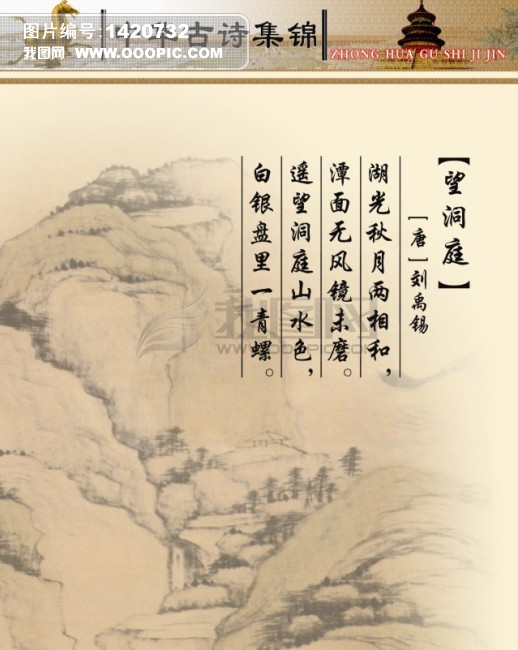 图片编号:1420732
我图网 www.OOOPIC.com
古诗集锦
ZHONG HUA GU SHI JI JIN
【望洞庭】
[唐]刘禹锡
湖光秋月两相和，
潭面无风镜未磨。
遥望洞庭山水色，
白银盘里一青螺。
我图网